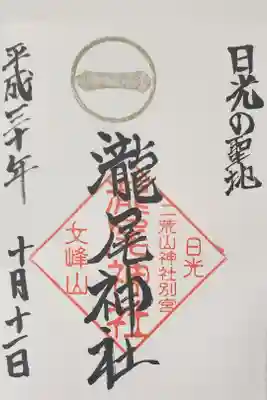 日光の聖地
瀧尾神社
日光
二荒山神社別宮
瀧尾神社
女峰山
平成三十年
十月十一日